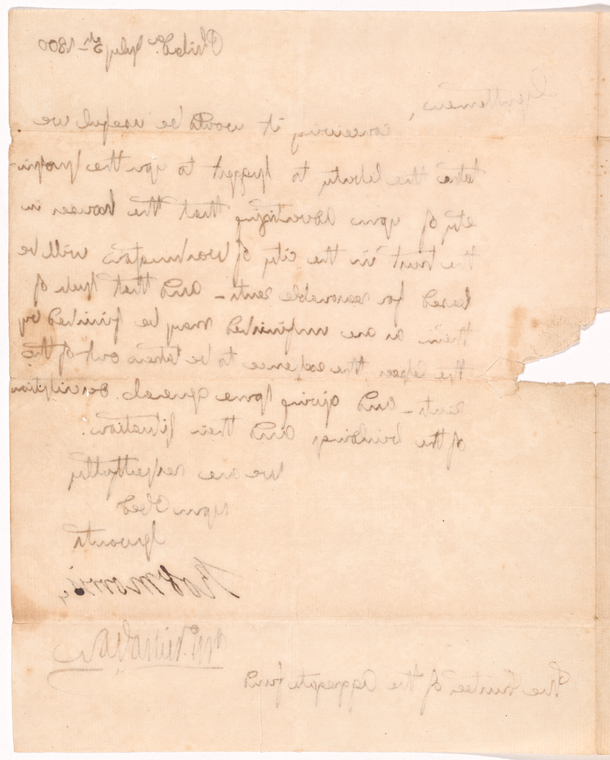 Philada. July 5th 1800
Gentlemen,
conceiving it would be useful we
take the liberty to suggest to you the propri-
ety of your advertizing that the houses in
the trust in the city of Washington will be
leased for reasonable rents - and that such of
them as are unfinished may be finished by
the lessees the expence to be taken out of the
rents - and giving some general description
of the buildings and their situations.
We are respectfully
your Obed
Servants
Rob Morris
The trustees of the Aggregate fund